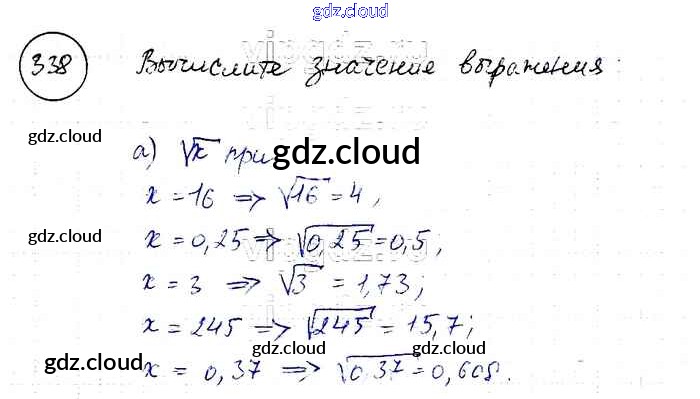 gdz.cloud
338 Вычислите значение выражения:
gdz.cloud
а) √x при gdz.cloud
x = 16 => √16 = 4,
gdz.cloud x = 0,25 => √0,25 = 0,5,
x = 3 => √3 = 1,73;
x = 245 => √245 = 15,7;
gdz.cloud gdz.cloud gdz.cloud
x = 0,37 => √0,37 = 0,608.